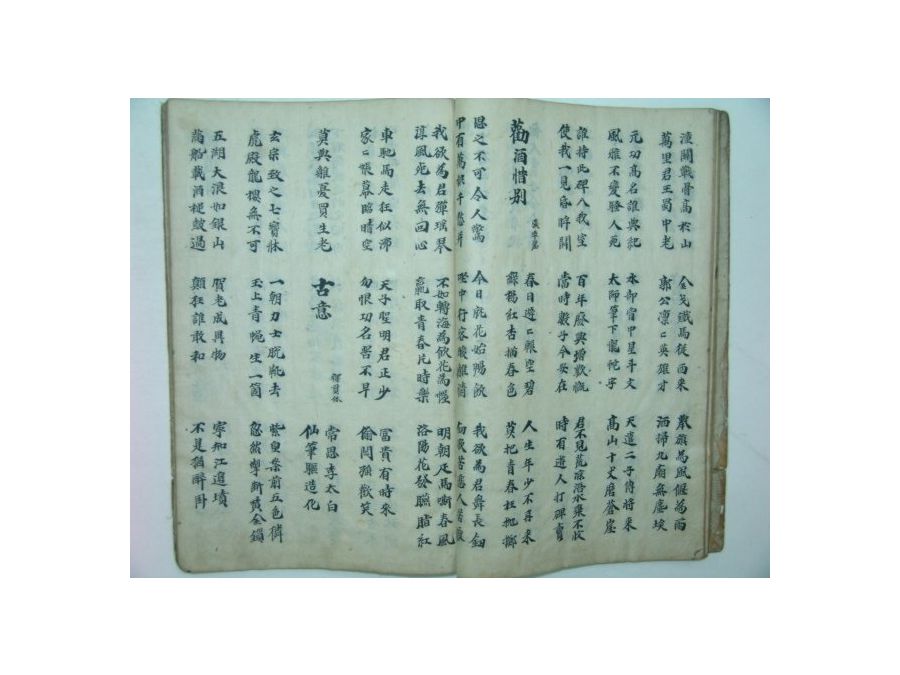 潼關戰骨高於山
萬里君王蜀中老
金戈鐵馬從西來
郭公凜〻英雄才
旗為風偃為雨
洒掃九廟無塵埃
元功高名誰與紀
風雅不變騷人死
水部胷中星斗文
太師筆下龍蛇字
天遣二子傳將來
高山十丈磨蒼崖
誰持此碑入我室
使我一見昏眸開
百年廢興增歎慨
當時數子今安在
君不見荒凉浯水棄不收
時有遊人打碑賣
勸酒惜別
張乖崖
春日遲〻輾空碧
綠楊紅杏描春色
人生年少不再來
莫把青春枉抛擲
思之不可令人驚
中有萬恨千愁并
今日就花始暢飮
坐中行客酸離情
我欲為君舞長劍
劍歌苦悲人苦厭
我欲為君彈瑤琴
淳風死去無回心
不如轉海為飮花為幄
贏取青春片時樂
明朝疋馬嘶春風
洛陽花發臙脂紅
車馳馬走狂似沸
家〻帳幕臨晴空
天子聖明君正少
勿恨功名苦不早
富貴有時來
偷閒强歡笑
莫與離憂買生老
古意
釋貫休
常思李太白
仙筆驅造化
玄宗致之七寶牀
虎殿龍樓無不可
一朝力士脫靴去
玉上青蠅生一箇
紫皇案前五色麟
忽然掣斷黃金鎖
五湖大浪如銀山
萬船載酒槌皷過
賀老成異物
顚狂誰敢和
寧知江邊墳
不是猶醉臥